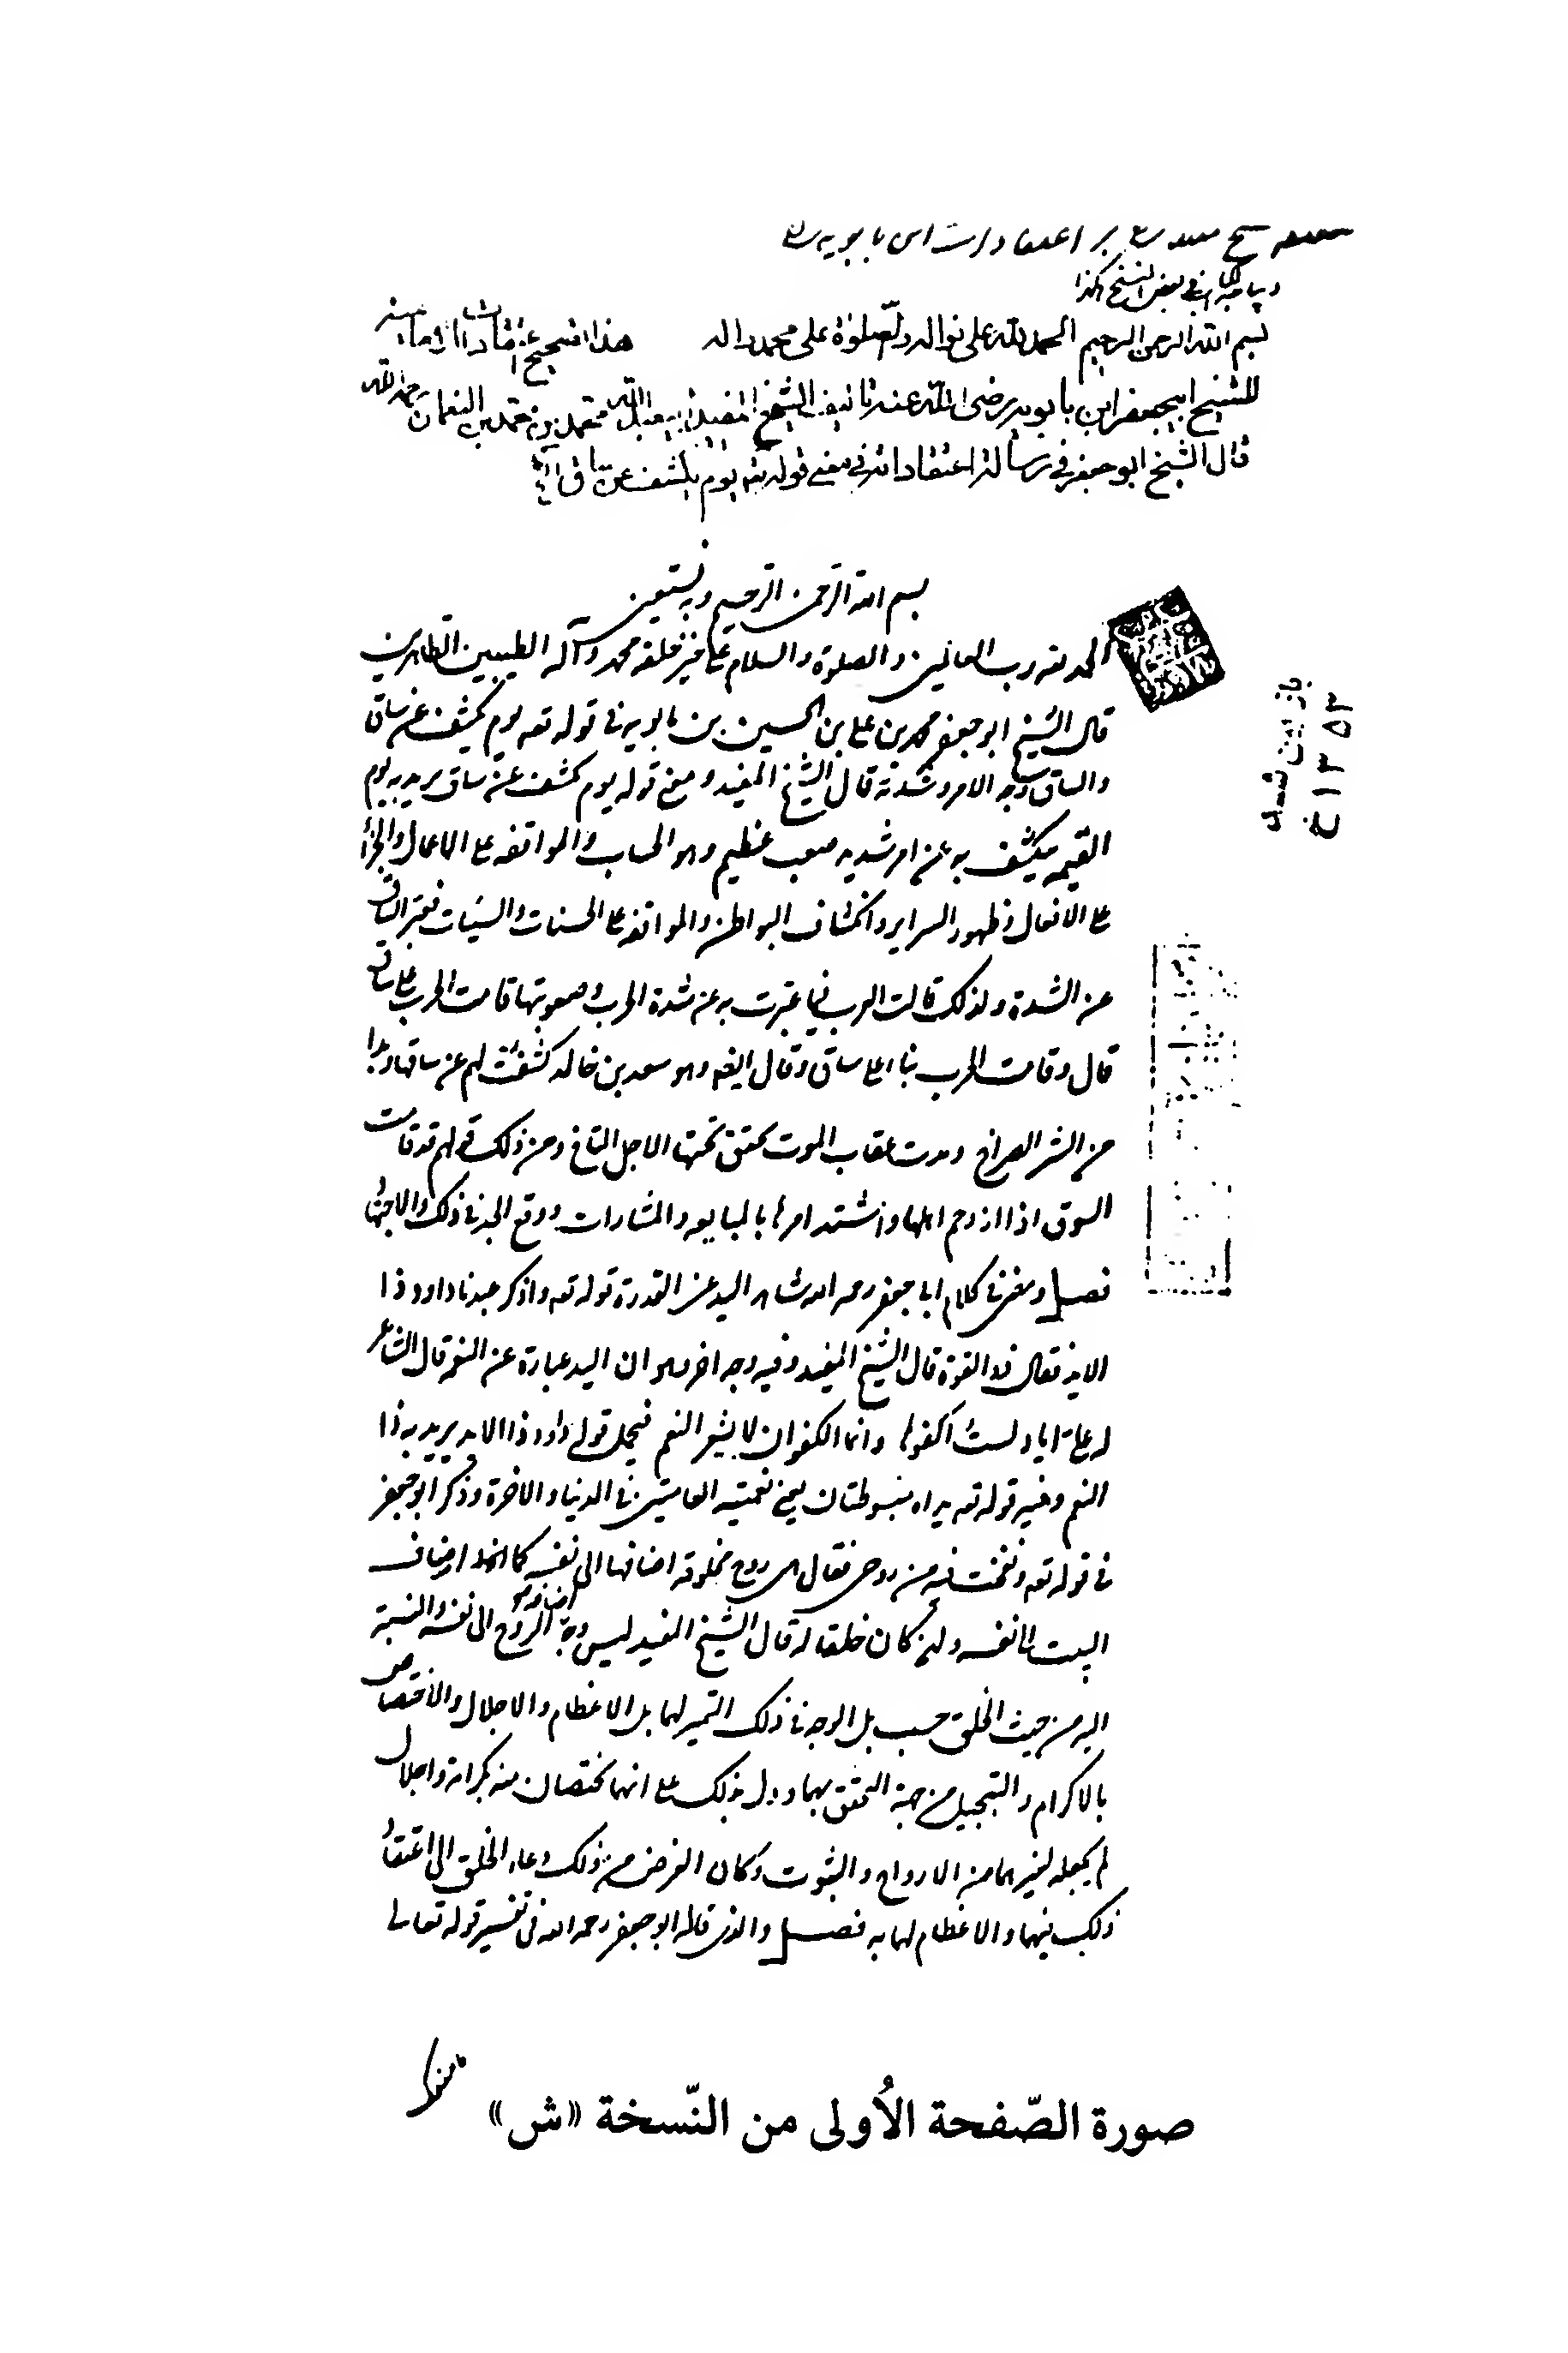 شيخ مفيد بر اعتقادات ابن بابويه
ديباجه الكتاب في بعض النسخ هكذا
بسم الله الرحمن الرحيم الحمد لله على نواله والصلوة على محمد واله هذا تصحيح اعتقادات الامامية
للشيخ ابيجعفر ابن بابويه رضى الله عنه تاليف الشيخ المفيد ابيعبد الله محمد بن محمد بن النعمان رحمه الله
قال الشيخ ابو جعفر في رسالة اعتقاداته في معنى قوله تع يوم يكشف عن ساق
بسم الله الرحمن الرحيم وبه نستعين
الحمد لله رب العالمين والصلوة والسلام على خير خلقه محمد وآله الطيبين الطاهرين
قال الشيخ ابو جعفر محمد بن على بن الحسين بن بابويه في قوله تعه يوم يكشف عن ساق
والساق وجه الامر وشدته قال الشيخ المفيد ومعنى قوله يوم يكشف عن ساق يريد به يوم
القيمه يكشف به عن امر شديد صعب عظيم وهو الحساب والمواقفه على الاعمال والجزاء
على الافعال وظهور السراير وانكشاف البواطن والمواقفه على الحسنات والسيئات فعبر بالساق
عن الشدة ولذلك قالت العرب فيما عبرت به عن شدة الحرب وصعوبتها قامت الحرب على ساق
قال وقامت الحرب بنا على ساق وقال ايضه وهو سعد بن خالد كشفت لهم عن ساقها وبدا
من الشر الصراح وبدت عقاب الموت يخفق تحتها الاجل المتاح ومن ذلك قولهم قد قامت
السوق اذا ازدحم اهلها واشتد امرها بالمبايعه والمشارات ووقع الجد في ذلك والاجتهاد
فصل ومضى في كلام ابى جعفر رحمه الله شاهد اليد عن القدرة قوله تعه واذكر عبدنا داود ذا
الايد فقال ذو القوة قال الشيخ المفيد وفيه وجه اخر وهو ان اليد عبارة عن النعم قال الشاعر
له على ايادٍ لستُ اكفرها وانما الكفر ان لا يشكر النعم فيحمل قوله داود ذا الايد يريد به ذا
النعم وفيه قوله تعه يداه مبسوطتان يعني نعمتيه العامتين في الدنيا والاخرة وذكر ابو جعفر
في قوله تعه ونفخت فيه من روحى فقال هى روح مخلوقة اضافها الى نفسه كما اضاف
البيت الى نفسه وان كان خلقا له قال الشيخ المفيد ليس وجه اضافه الروح الى نفسه والنسبة
اليه من حيث الخلق حسب بل الوجه في ذلك التميز لهما بل الاعظام والاجلال والاختصاص
بالاكرام والتبجيل من جهة التحقق بهما ودل بذلك على انهما يختصان منه بكرامة واجلال
لم يجعله لغيرهما من الارواح والبيوت وكان الغرض من ذلك دعاء الخلق الى اعتقاد
ذلك فيهما والاعظام لهما به فصل والذى قاله ابو جعفر رحمه الله في تفسير قوله تعالى
بازبين شده
١٣٥٣
صورة الصّفحة الأُولى من النّسخة «ش»